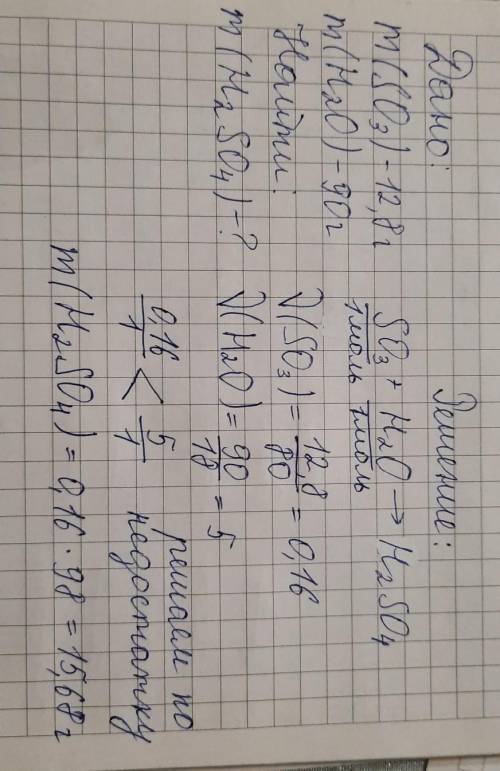 Дано:
m(SO3)-12,8г
m(H2O)-90г
Найти:
m(H2SO4)-?
Решение:
SO3 + H2O → H2SO4
1моль 1моль
ν(SO3) = 12,8/80 = 0,16
ν(H2O) = 90/18 = 5
0,16/1 < 5/1 решаем по
недостатку
m(H2SO4) = 0,16 · 98 = 15,68г